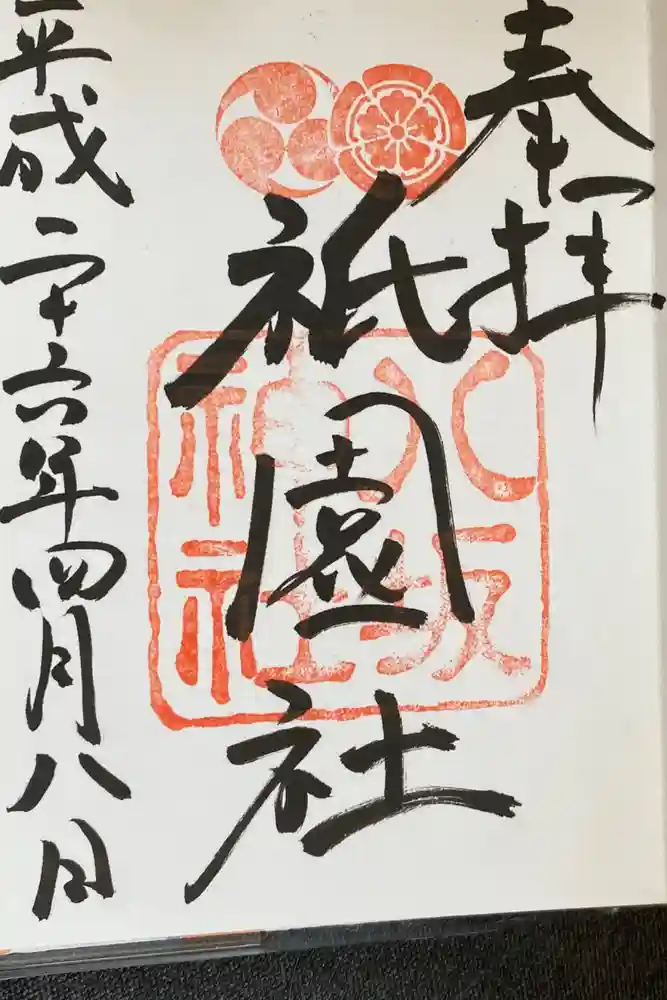 奉拝
祇園社
八坂
神社
平成二十六年四月八日